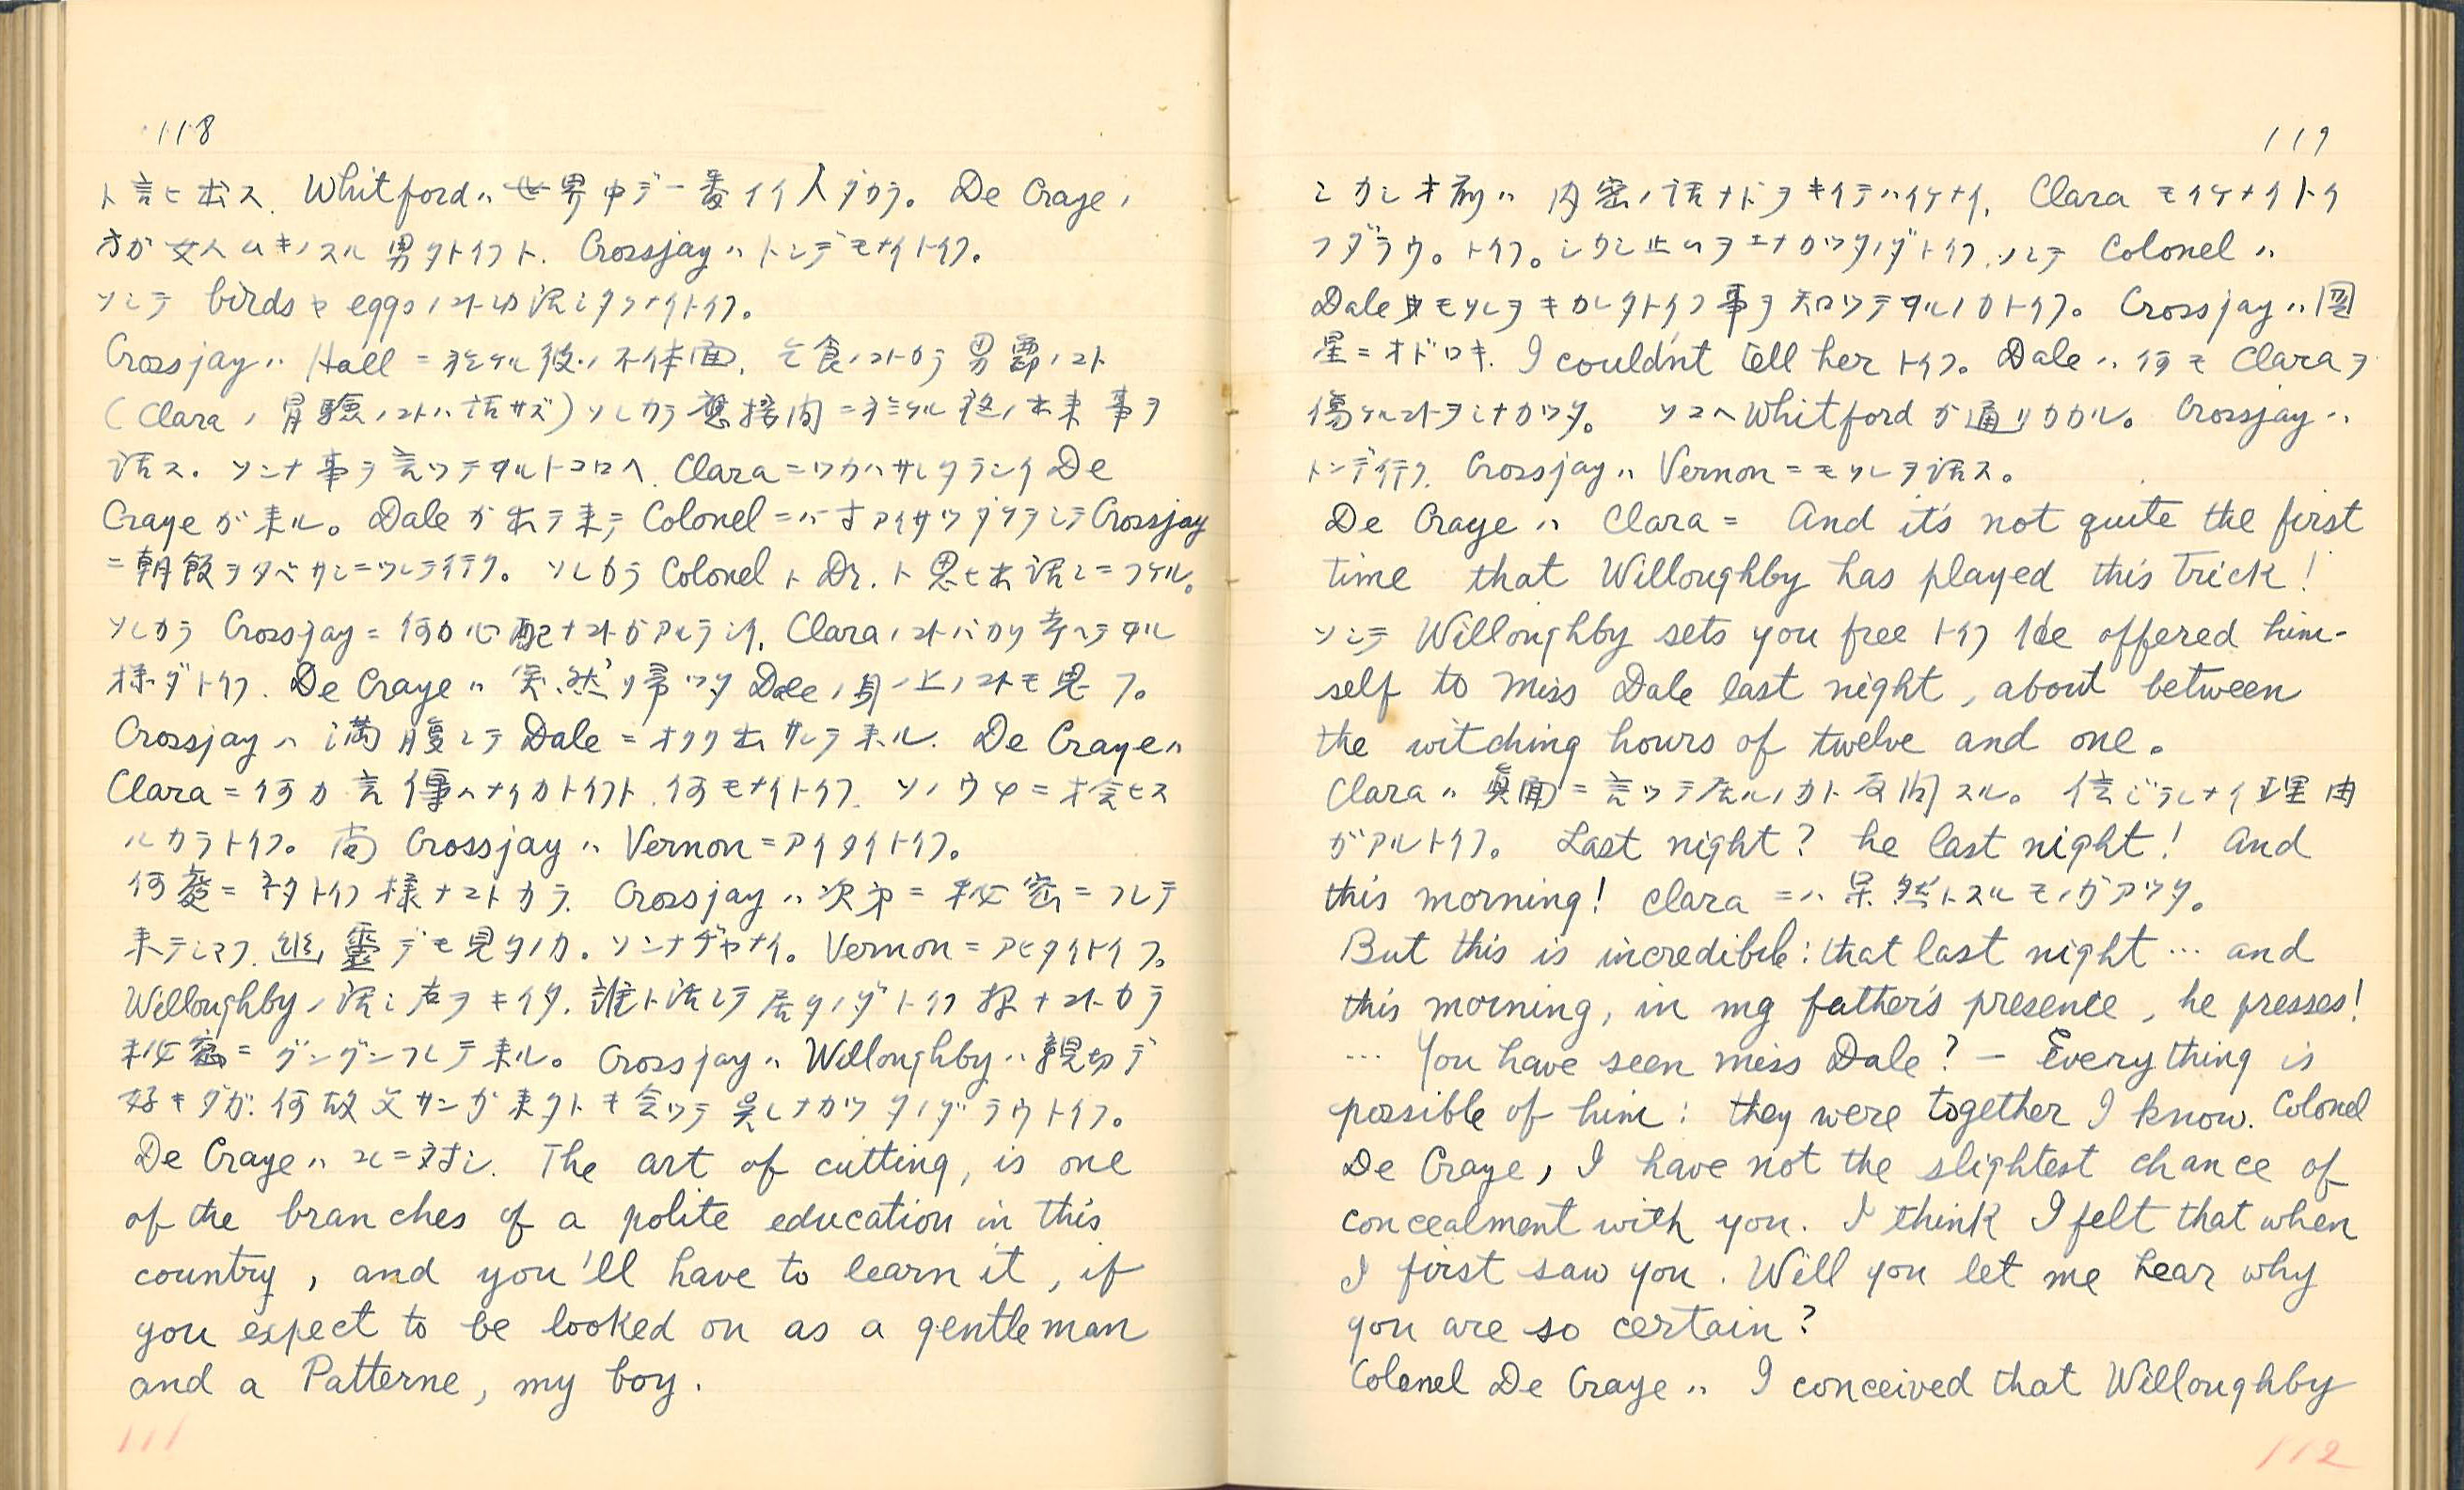 118
ト言ヒ出ス. Whitfordハ世界中デ一番イイ人ダカラ。 De Crayeノ
方ガ女人ムキノスル男ダトイフト. Crossjayハトンデモナイトイフ。
ソシテ birdsヤeggsノコトカ話シタクナイトイフ。
Crossjayハ Hallニ於ケル彼ノ不体面, 乞食ノコトカラ男爵ノコト
(Claraノ冒験ノコトハ話サズ) ソレカラ應接間ニ於ケル夜ノ出来事ヲ
話ス. ソンナ事ヲ言ツテヰルトコロヘ. Claraニワカハサレタラシイ De
Crayeガ来ル。 Daleガ出テ来テ Colonelニハ寸アイサツダケヲシテCrossjay
ニ朝飯ヲタベサシニツレテ行ク。 ソレカラ Colonelト Dr.ト思ヒ出話シニフケル。
ソレカラ Crossjayニ何カ心配ナコトガアルラシイ, Claraノコトバカリ考ヘテヰル
様ダトイフ. De Crayeハ突然ソ帰ツタ Daleノ身ノ上ノコトモ思フ。
Crossjayハ満腹シテ Daleニオクリ出サレテ来ル. De Crayeハ
Claraニ何カ言傳ヘナイカトイフト, 何モナイトイフ. ソノウチニオ会ヒス
ルカラトイフ。 尚 Crossjayハ Vernonニアイタイトイフ。
何處ニネタトイフ様ナコトカラ. Crossjayハ次第ニ秘密ニフレテ
来テシマフ. 幽靈デモ見タノカ. ソンナヂャナイ。 Vernonニアヒタイトイフ。
Willoughbyノ話シ声ヲキイタ. 誰ト話シテ居タノダトイフ様ナコトカラ
秘密ニグングンフレテ来ル。 Crossjayハ Willoughbyハ親切デ
好キダガ. 何故父サンガ来タトキ会ツテ呉レナカツタノダラウトイフ。
De Crayeハ之ニ対シ. The art of cutting, is one
of the branches of a polite education in this
country, and you'll have to learn it, if
you expect to be looked on as a gentleman
and a Patterne, my boy.
111
119
シカシオ前ハ内密ノ話ナドヲキイテハイケナイ. Claraモイケナイトイ
フダラウ。トイフ。シカシ止ムヲエナカツタノダトイフ. ソシテ Colonelハ
Daleモソレヲキカレタトイフ事ヲ知ツテヰルノカトイフ。 Crossjayハ図
星ニオドロキ. I couldn't tell her トイフ。 Daleハ何モ Claraヲ
傷ケルコトヲシナカツタ。 ソコヘWhitfordガ通リカカル。 Crossjayハ
トンデ行ク. Crossjayハ Vernonニモソレヲ話ス。
De Crayeハ Claraニ And it's not quite the first
time that Willoughby has played this trick!
ソシテ Willoughby sets you free トイフ He offered him-
self to Miss Dale last night, about between
the witching hours of twelve and one.
Claraハ眞面ニ言ツテ居ルノカト反問スル。 信ジラレナイ理由
ガアルトイフ。 Last night? he last night! And
this morning! Claraニハ呆然トスルモノガアツタ。
But this is incredible: that last night ... and
this morning, in my father's presence, he presses!
... You have seen Miss Dale? — Everything is
possible of him: they were together I know. Colonel
De Craye, I have not the slightest chance of
concealment with you. I think I felt that when
I first saw you. Will you let me hear why
you are so certain?
Colonel De Crayeハ I conceived that Willoughby
112